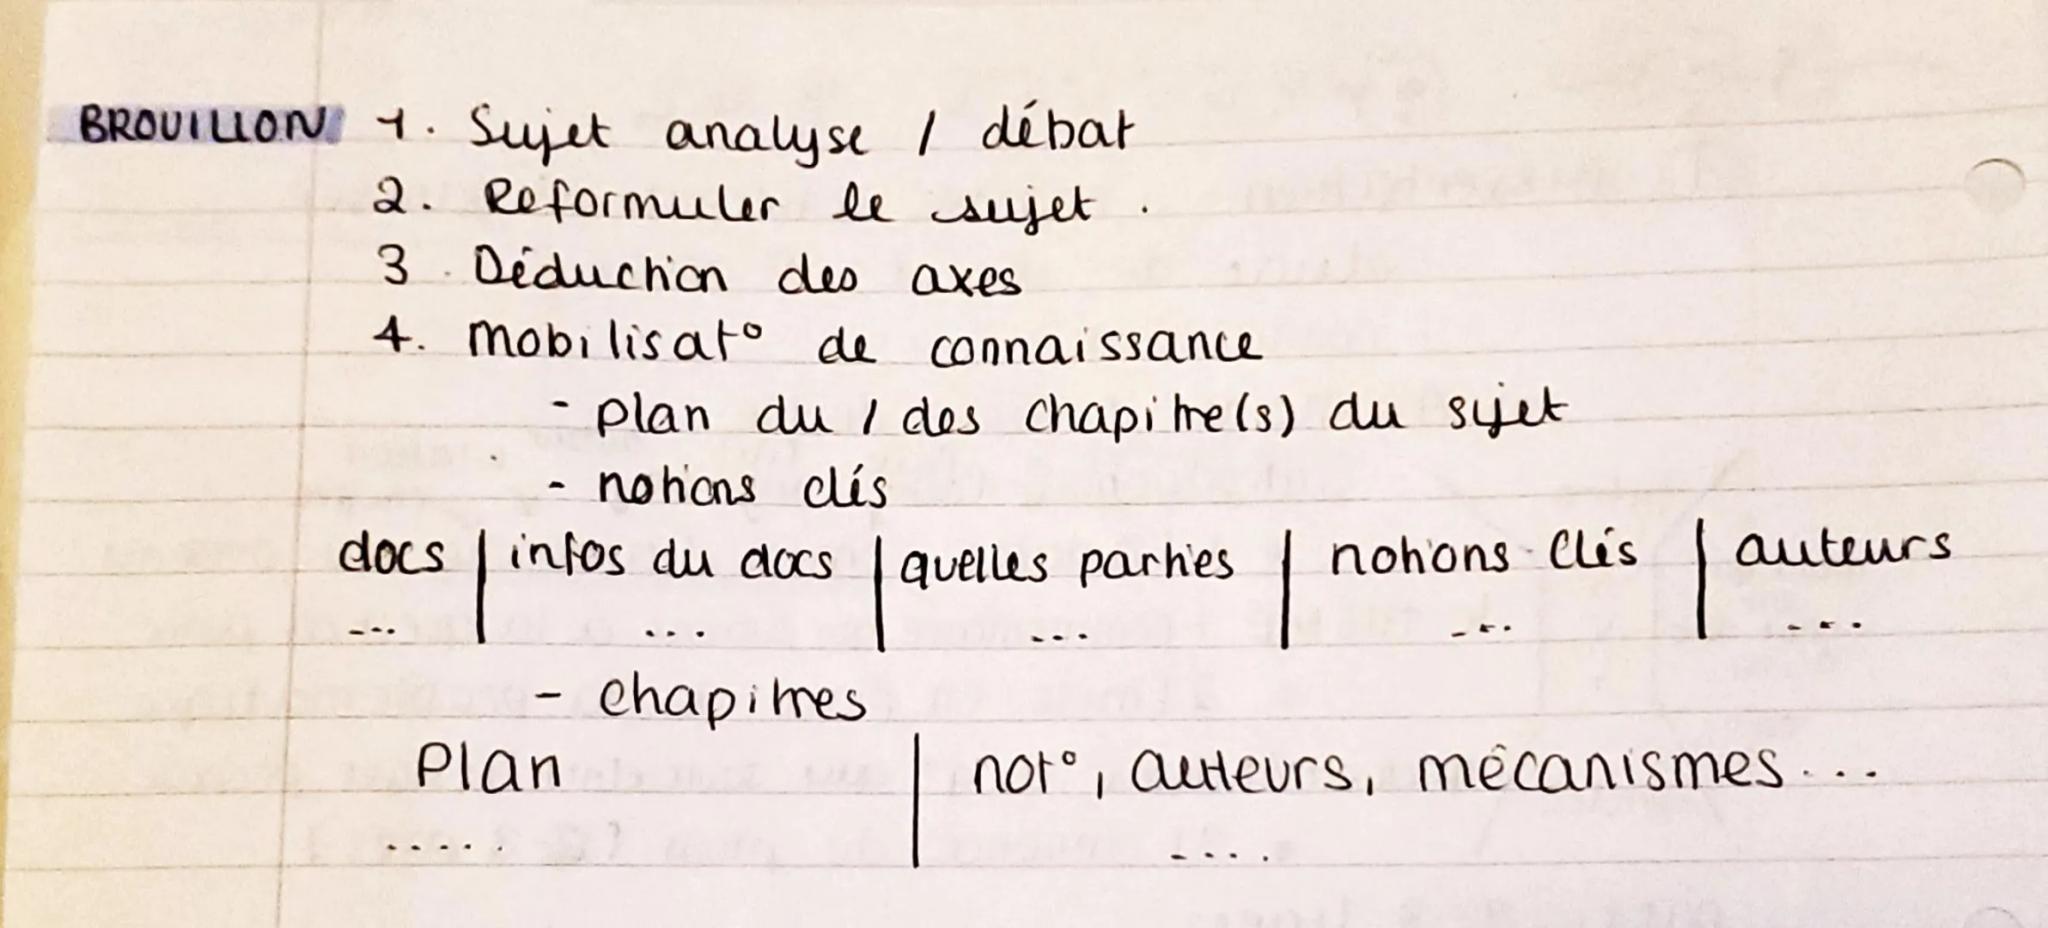 BROUILLON 1. Sujet analyse / débat
2. Reformuler le sujet.
3. Déduction des axes
4. Mobilisat° de connaissance
- plan du / des chapitre(s) du sujet
- notions clés
docs | infos du docs | quelles parties | notions clés | auteurs
... | ... | ... | ... | ...
- chapitres
Plan | not°, auteurs, mécanismes...
..... | ....